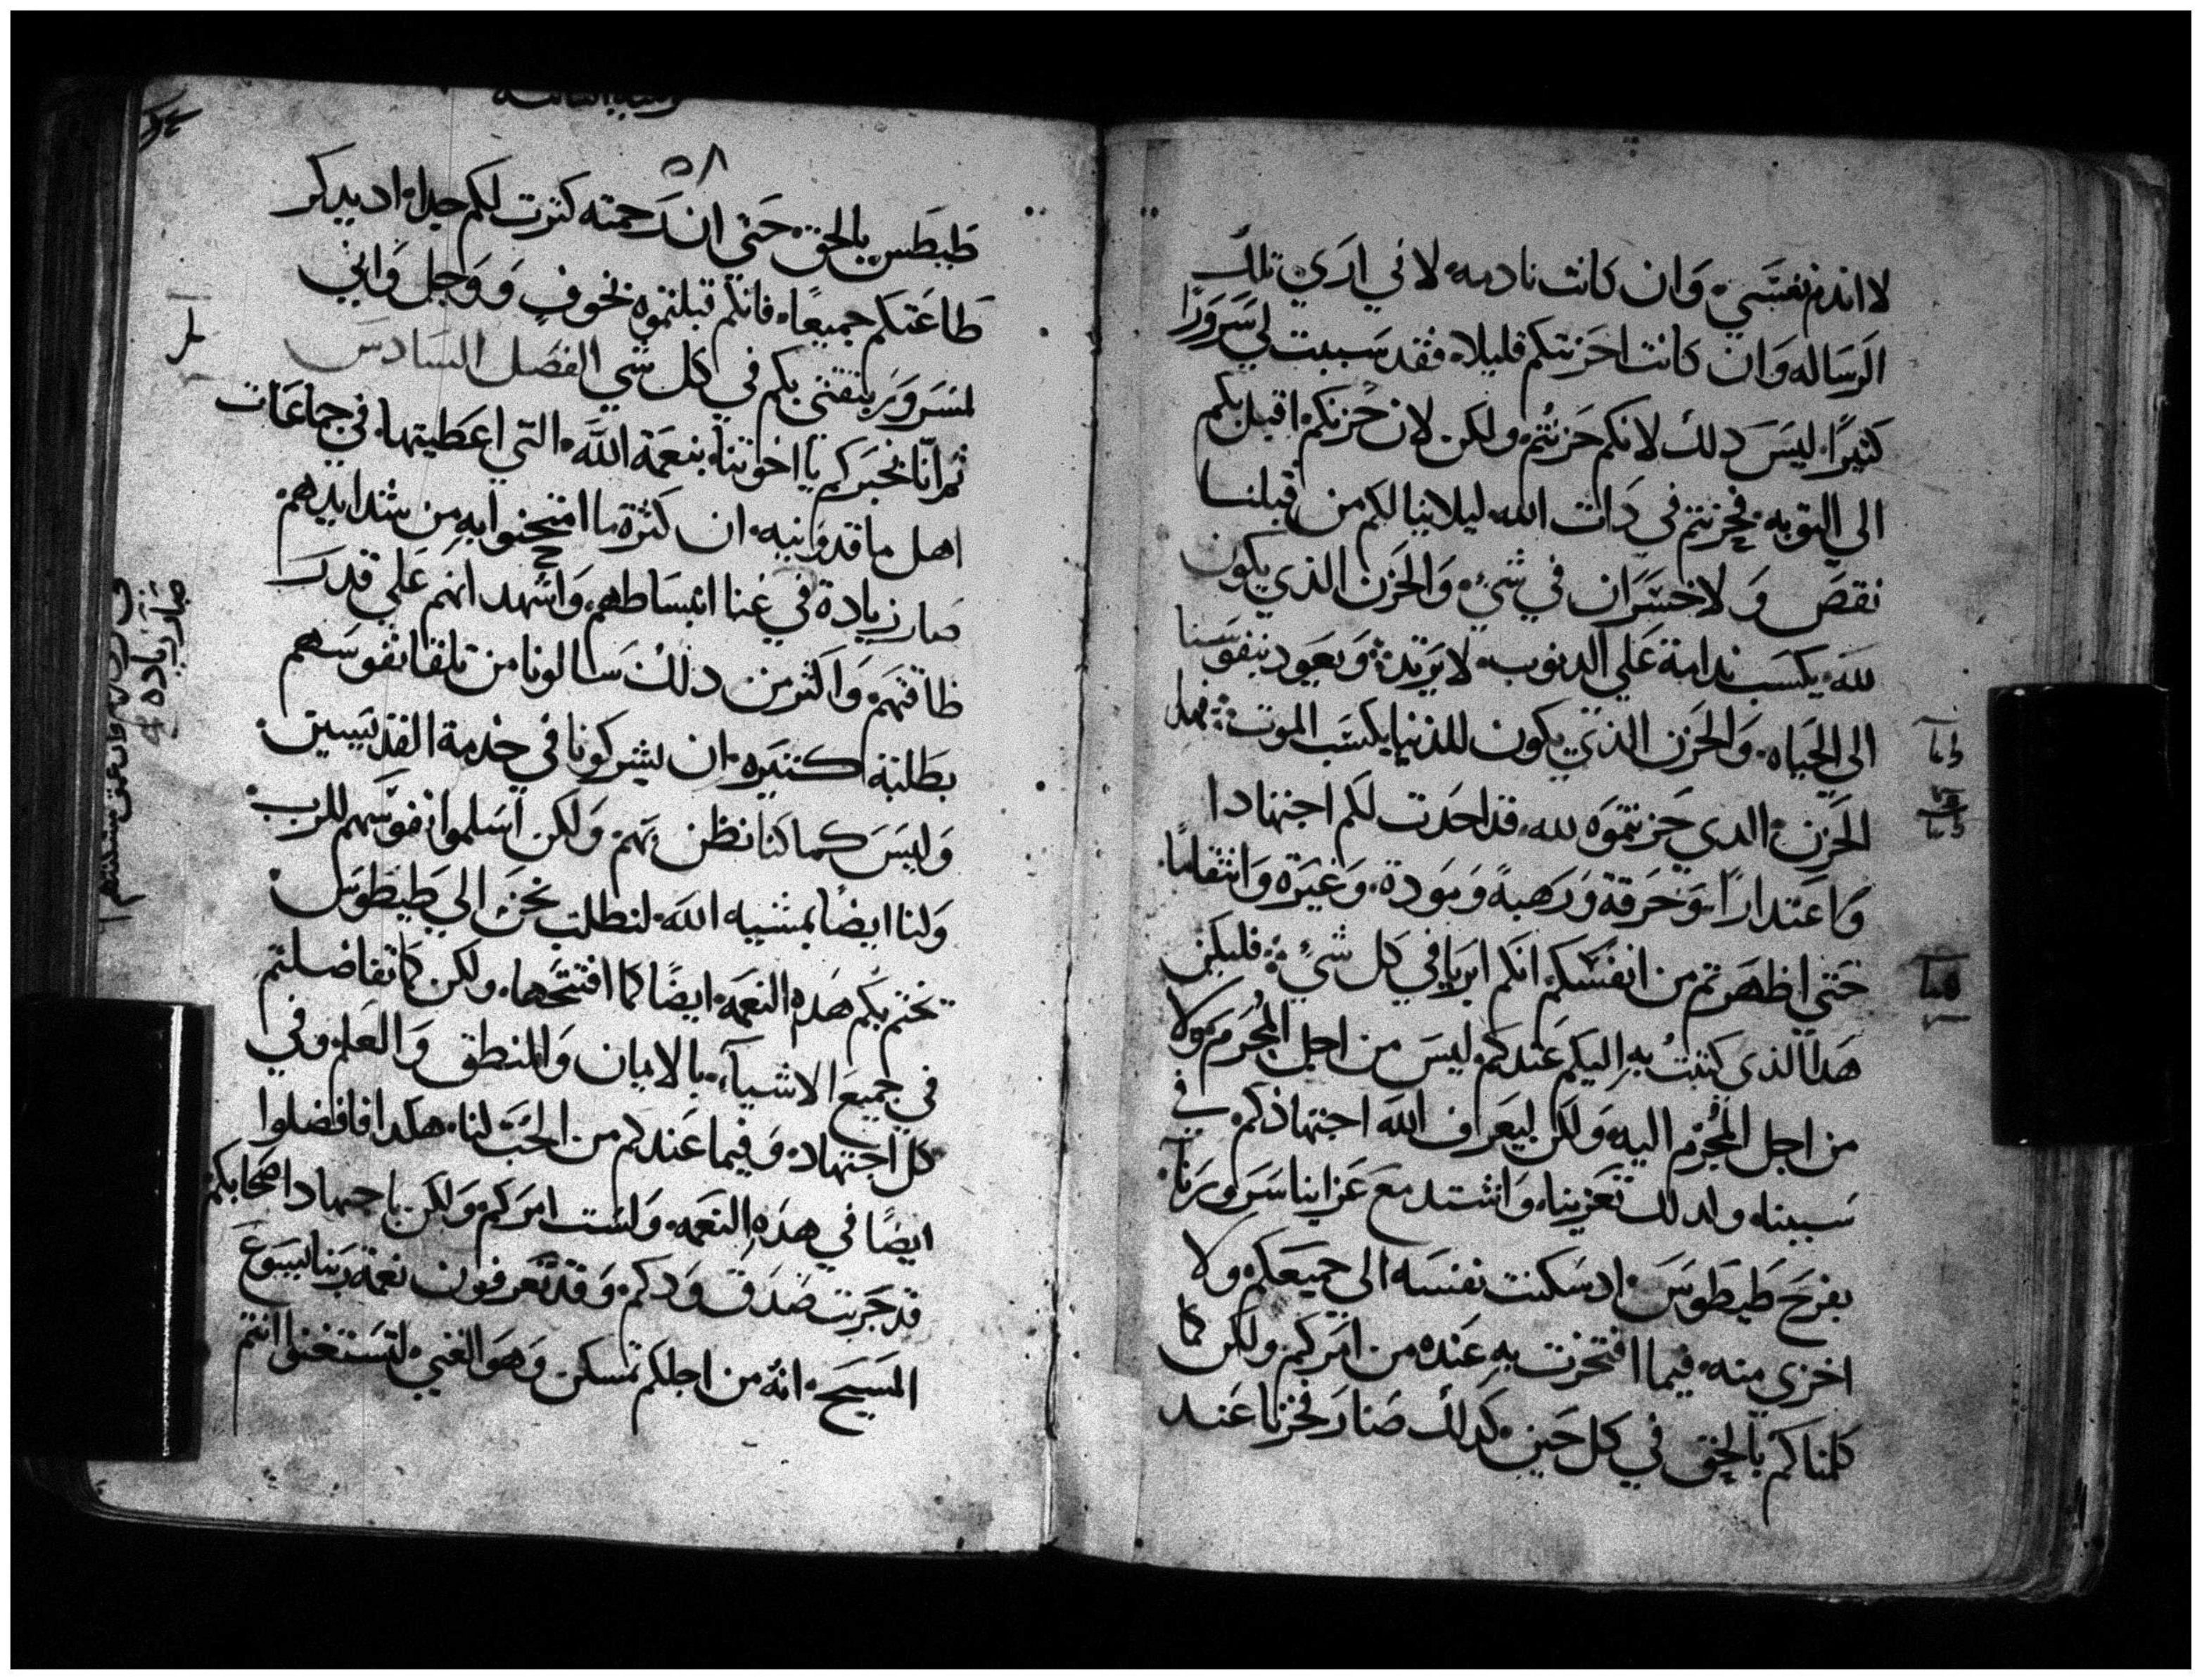 لا اندم نفسي وان كانت نادمه لاني اري تلك
الرساله وان كانت احزنتكم قليلا فقد سببت لي سرورًا
كثيرًا ليس دلك لانكم حزنتم ولكن لان حزنكم اقبل بكم
الي التوبه فحزنتم في دات الله ليلا ينالكم من قبلنا
نقص ولا خسران في شي والحزن الذي يكون
لله يكسب ندامة علي الدنوب لا يرتدة ويعود بنفوسنا
الي الحياه والحزن الذي يكون للدنيا يكسب الموت فهل
الحزن الدي حزنتموه لله قد احدت لكم اجتهادا
واعتدارا وحرقة ورهبة ومودة وغيره وانتقامًا
حتي اظهرتم من انفسكم انكم ابريا في كل شيء فليكن
هدا الذي كتبت به اليكم عندكم ليس من اجل المجرم ولا
من اجل المجرم اليه ولكن ليعرف الله اجتهادكم في
سببنا ولدلك تعزينا واشتد مع عزاينا سرورنا
بفرح طيطوس اد سكنت نفسه الي جميعكم ولا
اخزي منه فيما افتخرت به عنده من امركم ولكن كما
كلمناكم بالحق في كل حين كدلك صار فخرنا عند
٥٨
طيطس بالحق حتي ان رحمته كترت لكم جدا اد يدكر
طاعتكم جميعًا فانكم قبلتموه بخوف ووجل واني
لمسرور بثقتي بكم في كل شي الفصل السادس
ثم انا نخبركم يا اخوتنا بنعمة الله التي اعطيتها في جماعات
اهل ماقدونيه ان كثرة ما امتحنوا به من شدايدهم
صار زيادة في غنا انبساطهم واشهد انهم علي قدر
طاقتهم واكثر من دلك سالونا من تلقا نفوسهم
بطلبة كتيره ان يشركونا في خدمة القديسين
وليس كما كنا نظن بهم ولكن اسلموا نفوسهم للرب
ولنا ايضًا بمشيه الله لنطلب نحن الي طيطوس
تختم بكم هده النعمه ايضًا كما افتتحها ولكن كما تفاضلتم
في جميع الاشيآء بالايمان والمنطق والعلم وفي
كل اجتهاد وفيما عندكم من الحب لنا هكدا فافضلوا
ايضًا في هده النعمه ولست امركم ولكن باجتهاد اصحابكم
قد جربت صدق ودكم وقد تعرفون نعمة ربنا يسوع
المسيح انه من اجلكم تمسكن وهو الغني لتستغنوا انتم
صار زياده في